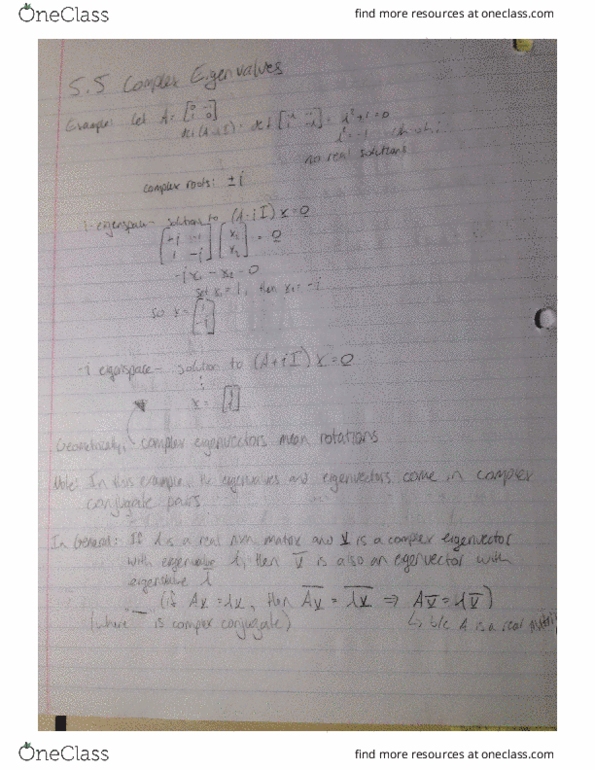 OneClass
find more resources at oneclass.com
5.5 Complex Eigenvalues
Example: Let A = [0 -1; 1 0]
det(A-λI) = det [-λ -1; 1 -λ] = λ²+1=0
λ²=-1
no real solutions
complex roots: ±i
i-eigenspace- solution to (A-iI) x=0
[-i -1; 1 -i] [x₁; x₂] = 0
-ix₁ - x₂ = 0
set x₁=1, then x₂= -i
so x = [1; -i]
-i eigenspace- solution to (A+iI) x=0
⋮
x = [1; i]
Geometrically, complex eigenvectors mean rotations
Note: In this example, the eigenvalues and eigenvectors come in complex
conjugate pairs
In General: If A is a real nxn matrix and v is a complex eigenvector
with eigenvalue λ, then v̅ is also an eigenvector with
eigenvalue λ
(if Av = λv, then A̅v̅ = λ̅v̅ ⇒ Av̅ = λv̅)
(where ‾ is complex conjugate)
↳ b/c A is a real matri
OneClass
find more resources at oneclass.com